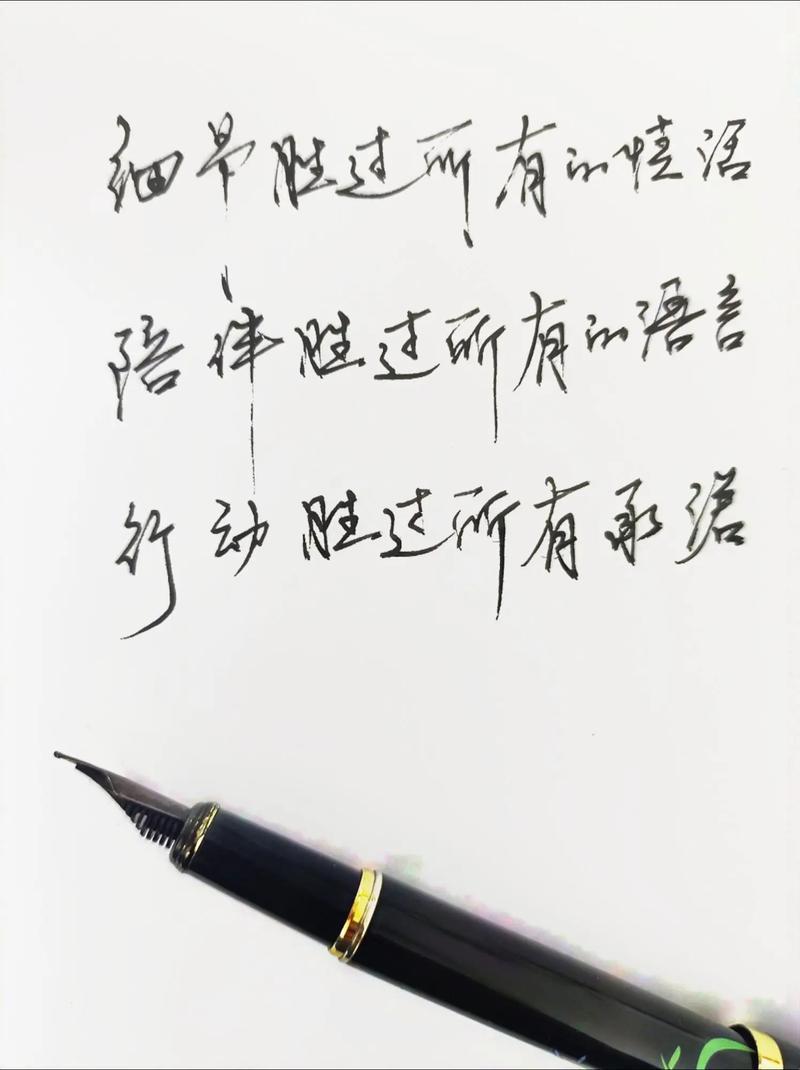 细节胜过所有的情话
陪伴胜过所有的语言
行动胜过所有承诺